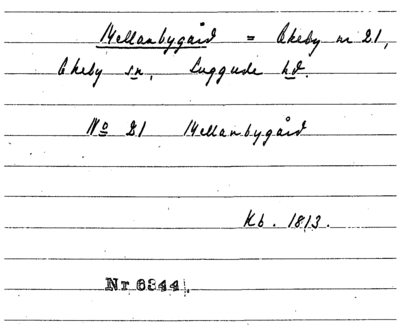 Mellanbygård = Ekeby nr 21,
Ekeby sn, Luggude hd.
No 21 Mellanbygård
Kb. 1813.
Nr 6344.